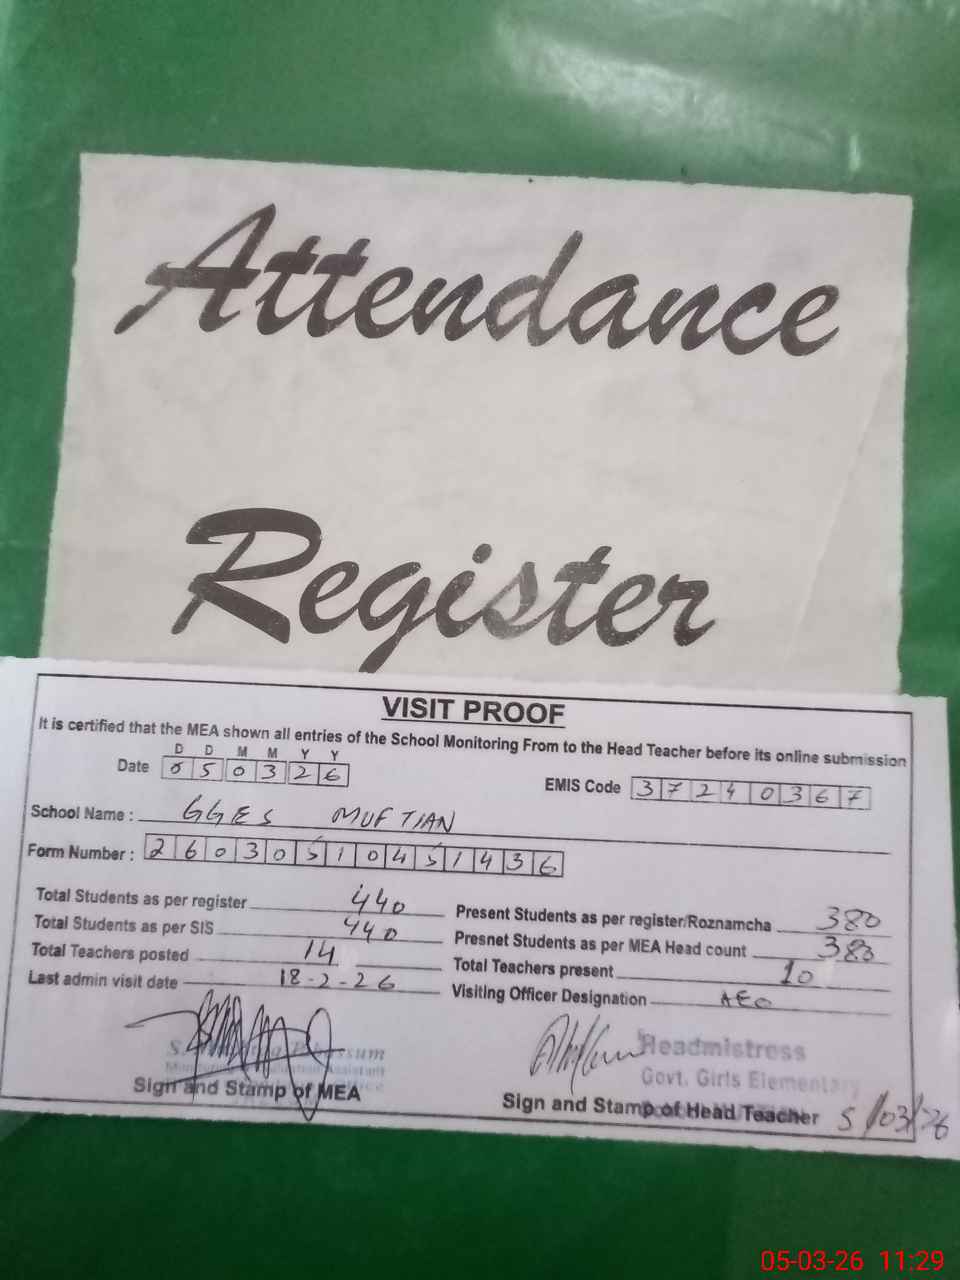 Attendance
Register
VISIT PROOF
It is certified that the MEA shown all entries of the School Monitoring From to the Head Teacher before its online submission
D D M M Y Y
Date 0 5 0 3 2 6
EMIS Code 3 7 2 4 0 3 6 7
School Name : GGES MUFTIAN
Form Number : 2 6 0 3 0 5 1 0 4 5 1 4 3 6
Total Students as per register 440
Present Students as per register/Roznamcha 380
Total Students as per SIS 440
Presnet Students as per MEA Head count 380
Total Teachers posted 14
Total Teachers present 10
Last admin visit date 18-2-26
Visiting Officer Designation AEO
Headmistress
Govt. Girls Elementary
Sign and Stamp of MEA
Sign and Stamp of Head Teacher 5/03/26
05-03-26 11:29